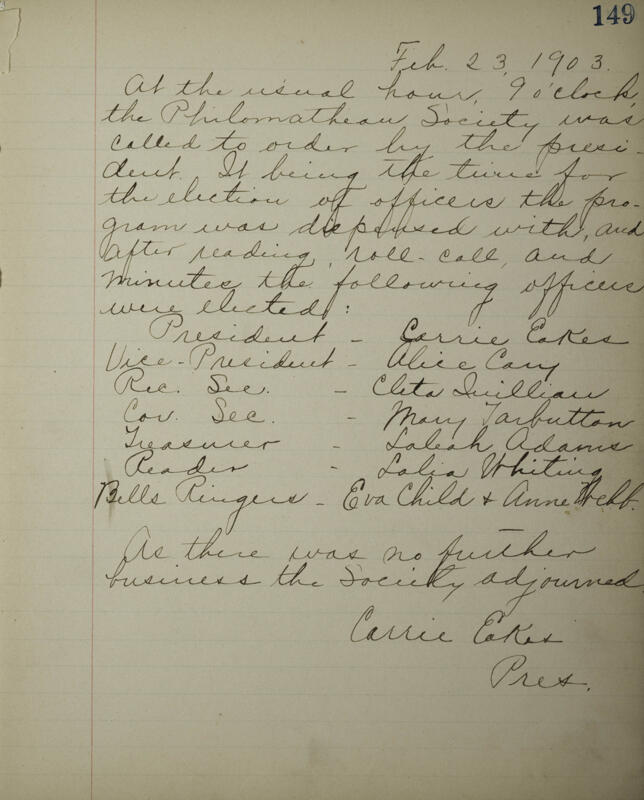 149
Feb. 23, 1903.
At the usual hour, 9 o'clock,
the Philomathean Society was
called to order by the presi-
dent. It being the time for
the election of officers the pro-
gram was dispensed with, and
after reading, roll-call, and
minutes the following officers
were elected:
President - Carrie Eakes
Vice-President - Alice Cary
Rec. Sec. - Cleta Quillian
Cor. Sec. - Mary Tarbutton
Treasurer - Laleah Adams
Reader - Lalia Whiting
Bells Ringers - Eva Child & Anne Webb.
As there was no further
business the Society adjourned.
Carrie Eakes
Pres.